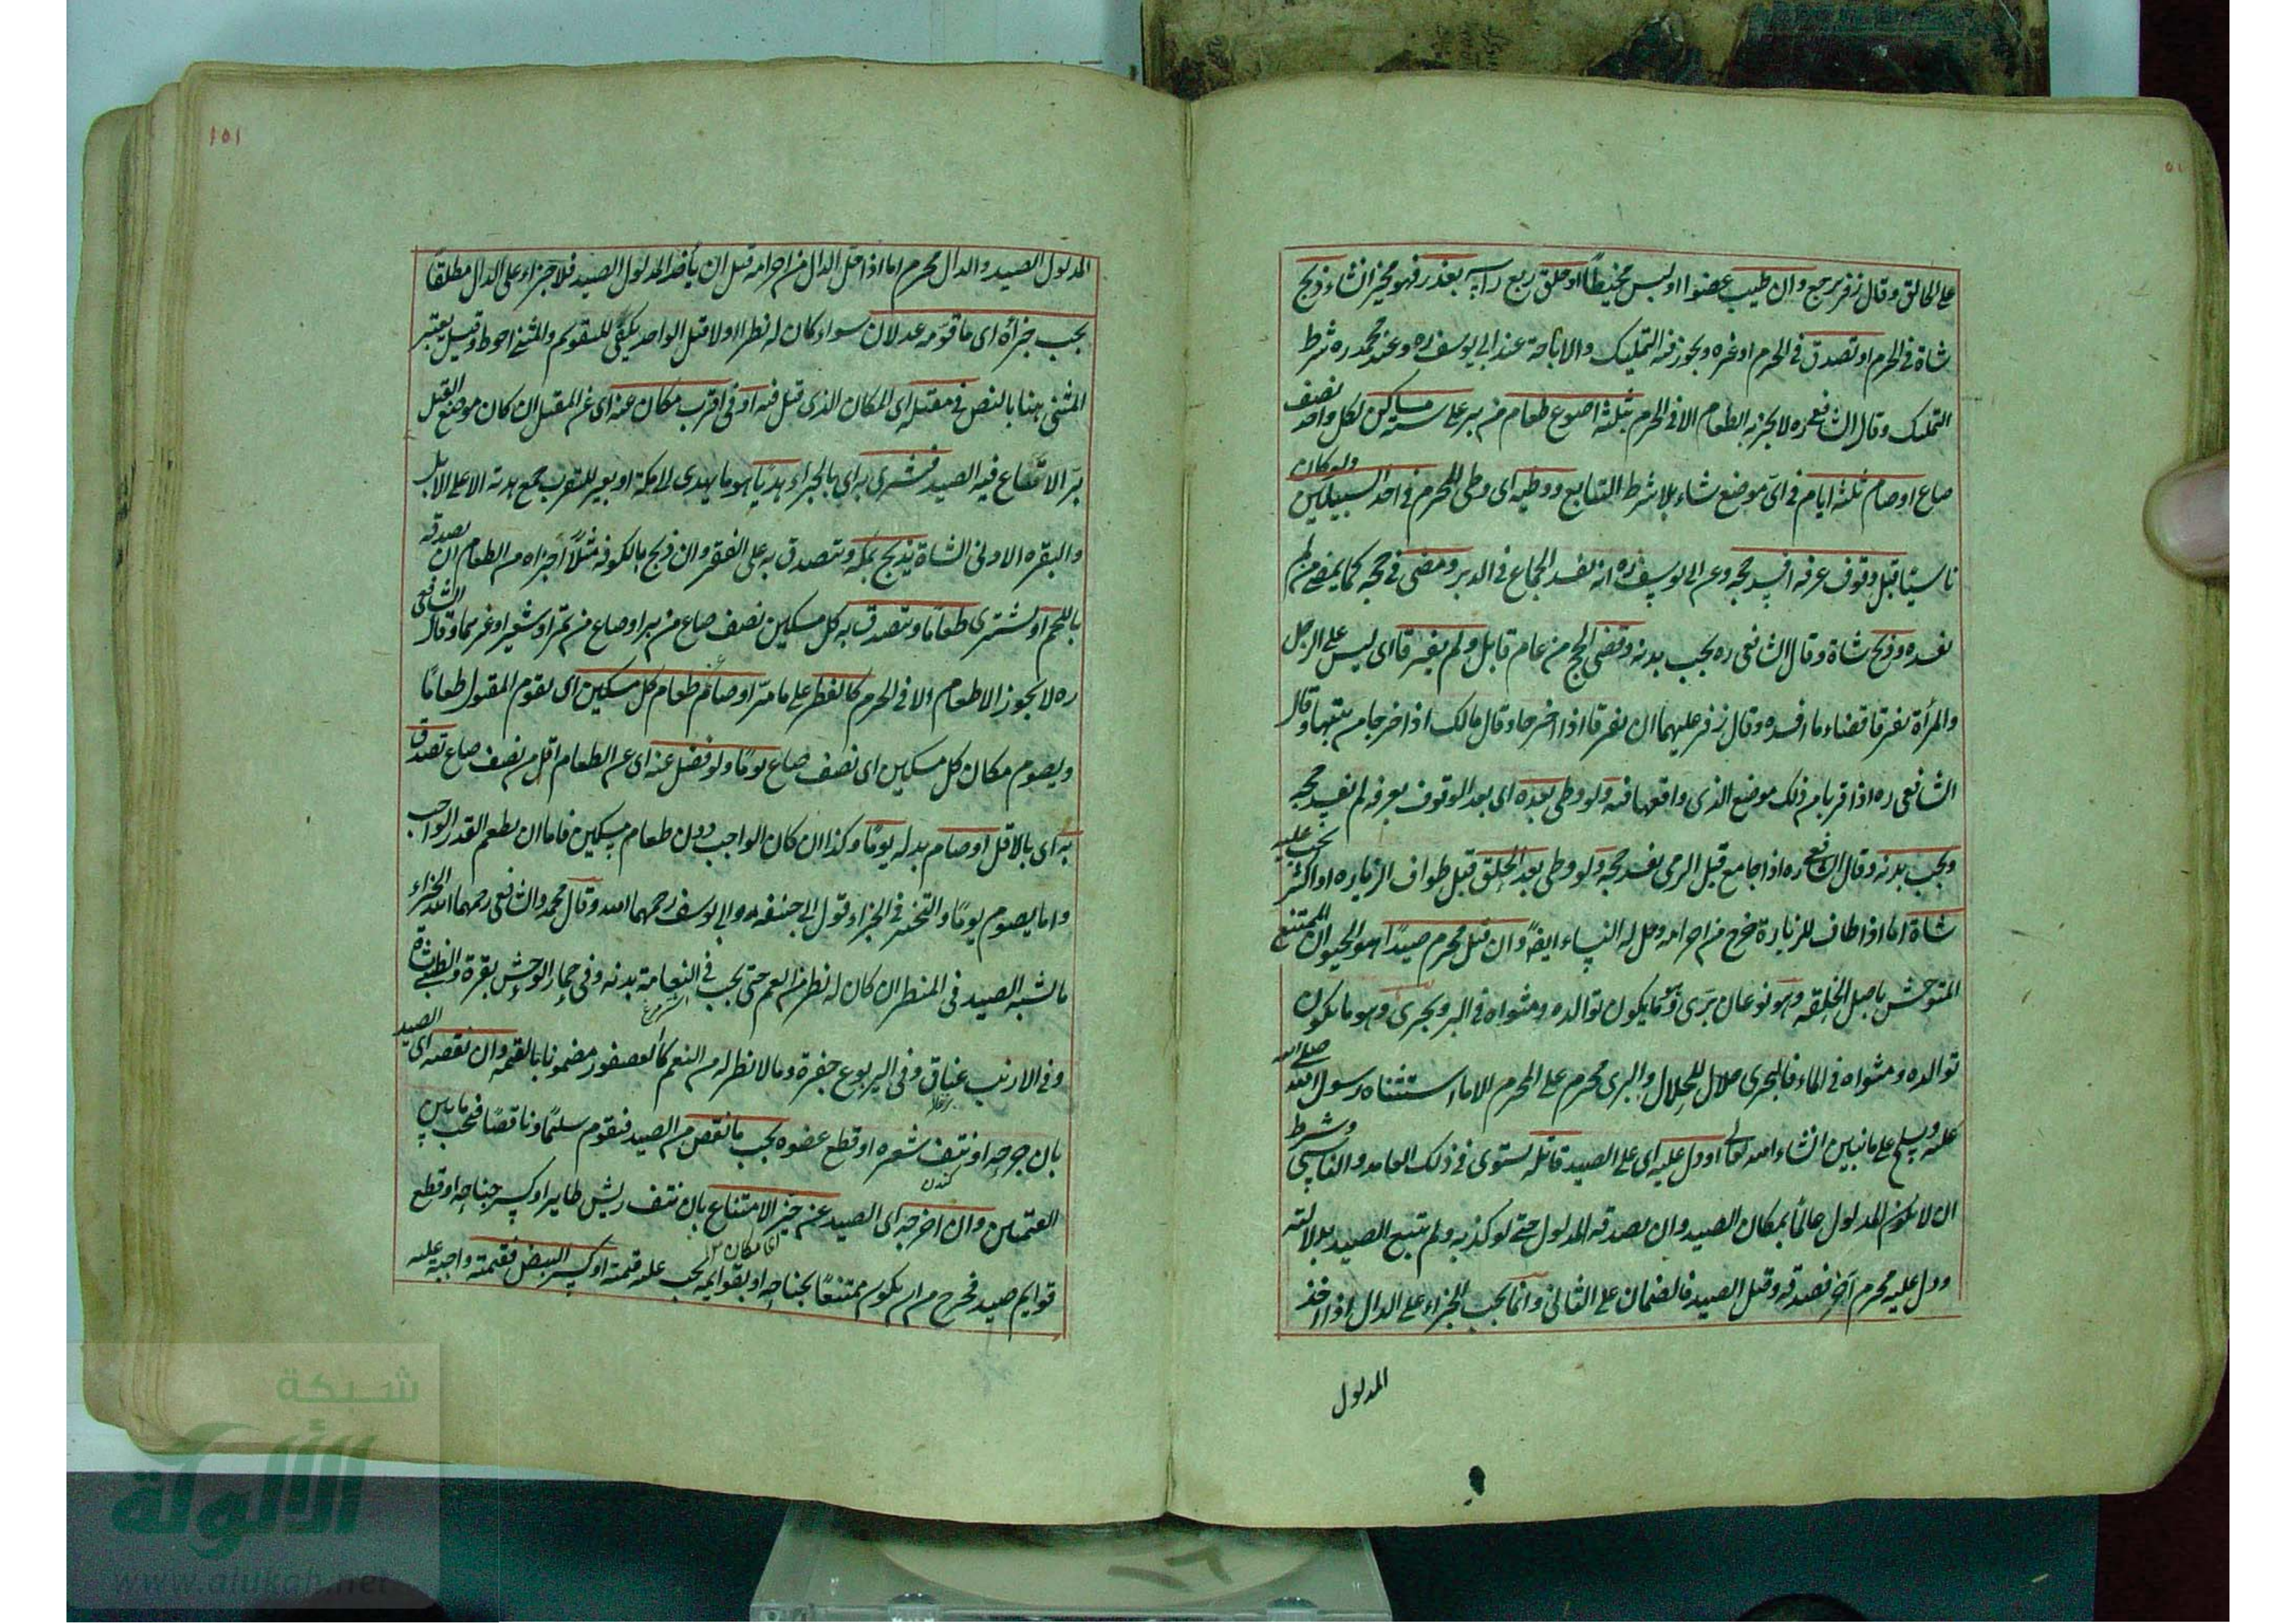 على الحالق وقال زفر يرجع وان طيب عضوا او لبس مخيطًا او حلق ربع راسه بعذر فهو مخير ان شاء ذبح
شاة فى الحرم او تصدق فى الحرم او غيره ويجوز فيه التمليك والاباحة عند ابى يوسف ره وعند محمد ره شرط
التمليك وقال الشافعى ره لا يجزيه الطعام الا فى الحرم بثلثة اصوع طعام من بر على ستة مساكين لكل واحد نصف
صاع او صام ثلثة ايام فى اىّ موضع شاء بلا شرط التتابع ووطيه اى وطى المحرم فى احد السبيلين ولو كان
ناسيًا قبل وقوف عرفه افسد حجه وعن ابى يوسف ره انه لا يفسد الجماع فى الدبر ومضى فى حجه كما يمضى من لم
يفسده وذبح شاة وقال الشافعى ره يجب بدنه وقضى الحج من عام قابل ولم يفترقا اى ليس على الرجل
والمرأة تفرقا قضاء ما افسده وقال زفر عليهما ان يفرقا اذا اخرجا وقال مالك اذا خرجا من بيتهما وقال
الشافعى ره اذا قربا من ذلك موضع الذى واقعها فيه ولو وطى بعده اى بعد الوقوف بعرفه لم يفسد حجه
ويجب بدنه وقال الشافعى ره اذا جامع قبل الرمى يفسد حجه ولو وطى بعد الحلق قبل طواف الزياره او اكثر يجب عليه
شاة اما اذا طاف للزيارة خرج من احرامه وحل له النساء ايضًا وان قتل محرم صيدًا هو الحيوان الممتنع
المتوحش باصل الخلقه وهو نوعان برّى وهو ما يكون توالده ومثواه فى البر وبحرى وهو ما يكون
توالده ومثواه فى الماء فالبحرى حلال للحلال والبرى محرم على المحرم الا ما استثناه رسول الله صلى الله
عليه وسلم على ما نبين انشاء الله تعالى او دل عليه اى على الصيد قاتله يستوى فى ذلك العامد والناسى وشرط
ان لا يكون المدلول عالمًا بمكان الصيد وان يصدقه المدلول حتى لو كذبه ولم يتبع الصيد بدلالته
ودل عليه محرم آخر فصدقه وقتل الصيد فالضمان على الثانى وانما يجب الجزاء على الدال اذا اخذ
المدلول
١٥١
المدلول الصيد والدال محرم اما اذا حل الدال من احرامه قبل ان يأخذ المدلول الصيد فلا جزاء على الدال مطلقًا
يجب جزاؤه اى ما قوّمه عدلان سواء كان له نظير او لا قيل الواحد يكفى للتقويم والمثنى احوط وقيل يعتبر
المثنى هنا بالنص فى مقتله اى المكان الذى قتل فيه او فى اقرب مكان عنه اى عن المقتل ان كان موضع القتل
برّ الا يباع فيه الصيد فيشترى به اى بالجزاء هديًا هو ما يهدى الى مكة او بعير للتقرب جمع بدنه الاعلى الابل
والبقره الاولى الشاة يذبح بمكه ويتصدق به على الفقراء وان ذبح بالكوفه مثلًا اجزاه من الطعام ان تصدقه
باللحم او يشترى طعامًا ويتصدق به كل مسكين نصف صاع من بر او صاع من تمر او شعير او غرهما وقال الشافعى
ره لا يجوز الاطعام الا فى الحرم كالفطر على ما مرّ او صام عن طعام كل مسكين اى يقوم المقتول طعامًا
ويصوم مكان كل مسكين اى نصف صاع يومًا ولو فضل عنه اى عن الطعام اقل من نصف صاع تصدق
به اى بالاقل او صام بدله يومًا وكذا ان كان الواجب دون طعام مسكين فاما ان يطعم القدر الواجب
واما يصوم يومًا والتخير فى الجزاء قول ابى حنيفه وابى يوسف رحمهما الله وقال محمد والشافعى رحمهما الله الجزاء
ما يشبه الصيد فى المنظر ان كان له نظير من النعم حتى يجب فى النعامة بدنه وفى حمار الوحش بقرة والظبى شاة
وفى الارنب عناق وفى اليربوع جفرة وما لا نظير له من النعم كالعصفور مضمونا بالقيمه وان نقصه اى الصيد
بان جرحه او نتف شعره او قطع عضوه يجب ما نقص من الصيد فيقوم سليمًا وناقصًا فيجب ما بين
القيمتين وان اخرجه اى الصيد عن حيز الامتناع بان نتف ريش طاير او كسر جناحه او قطع
قوايم صيد فخرج من ان يكون ممتنعًا بجناحه او بقوايمه يجب عليه قيمته او كسر البيض فقيمته واجبة عليه
شبكة
الألوكة
www.alukah.net